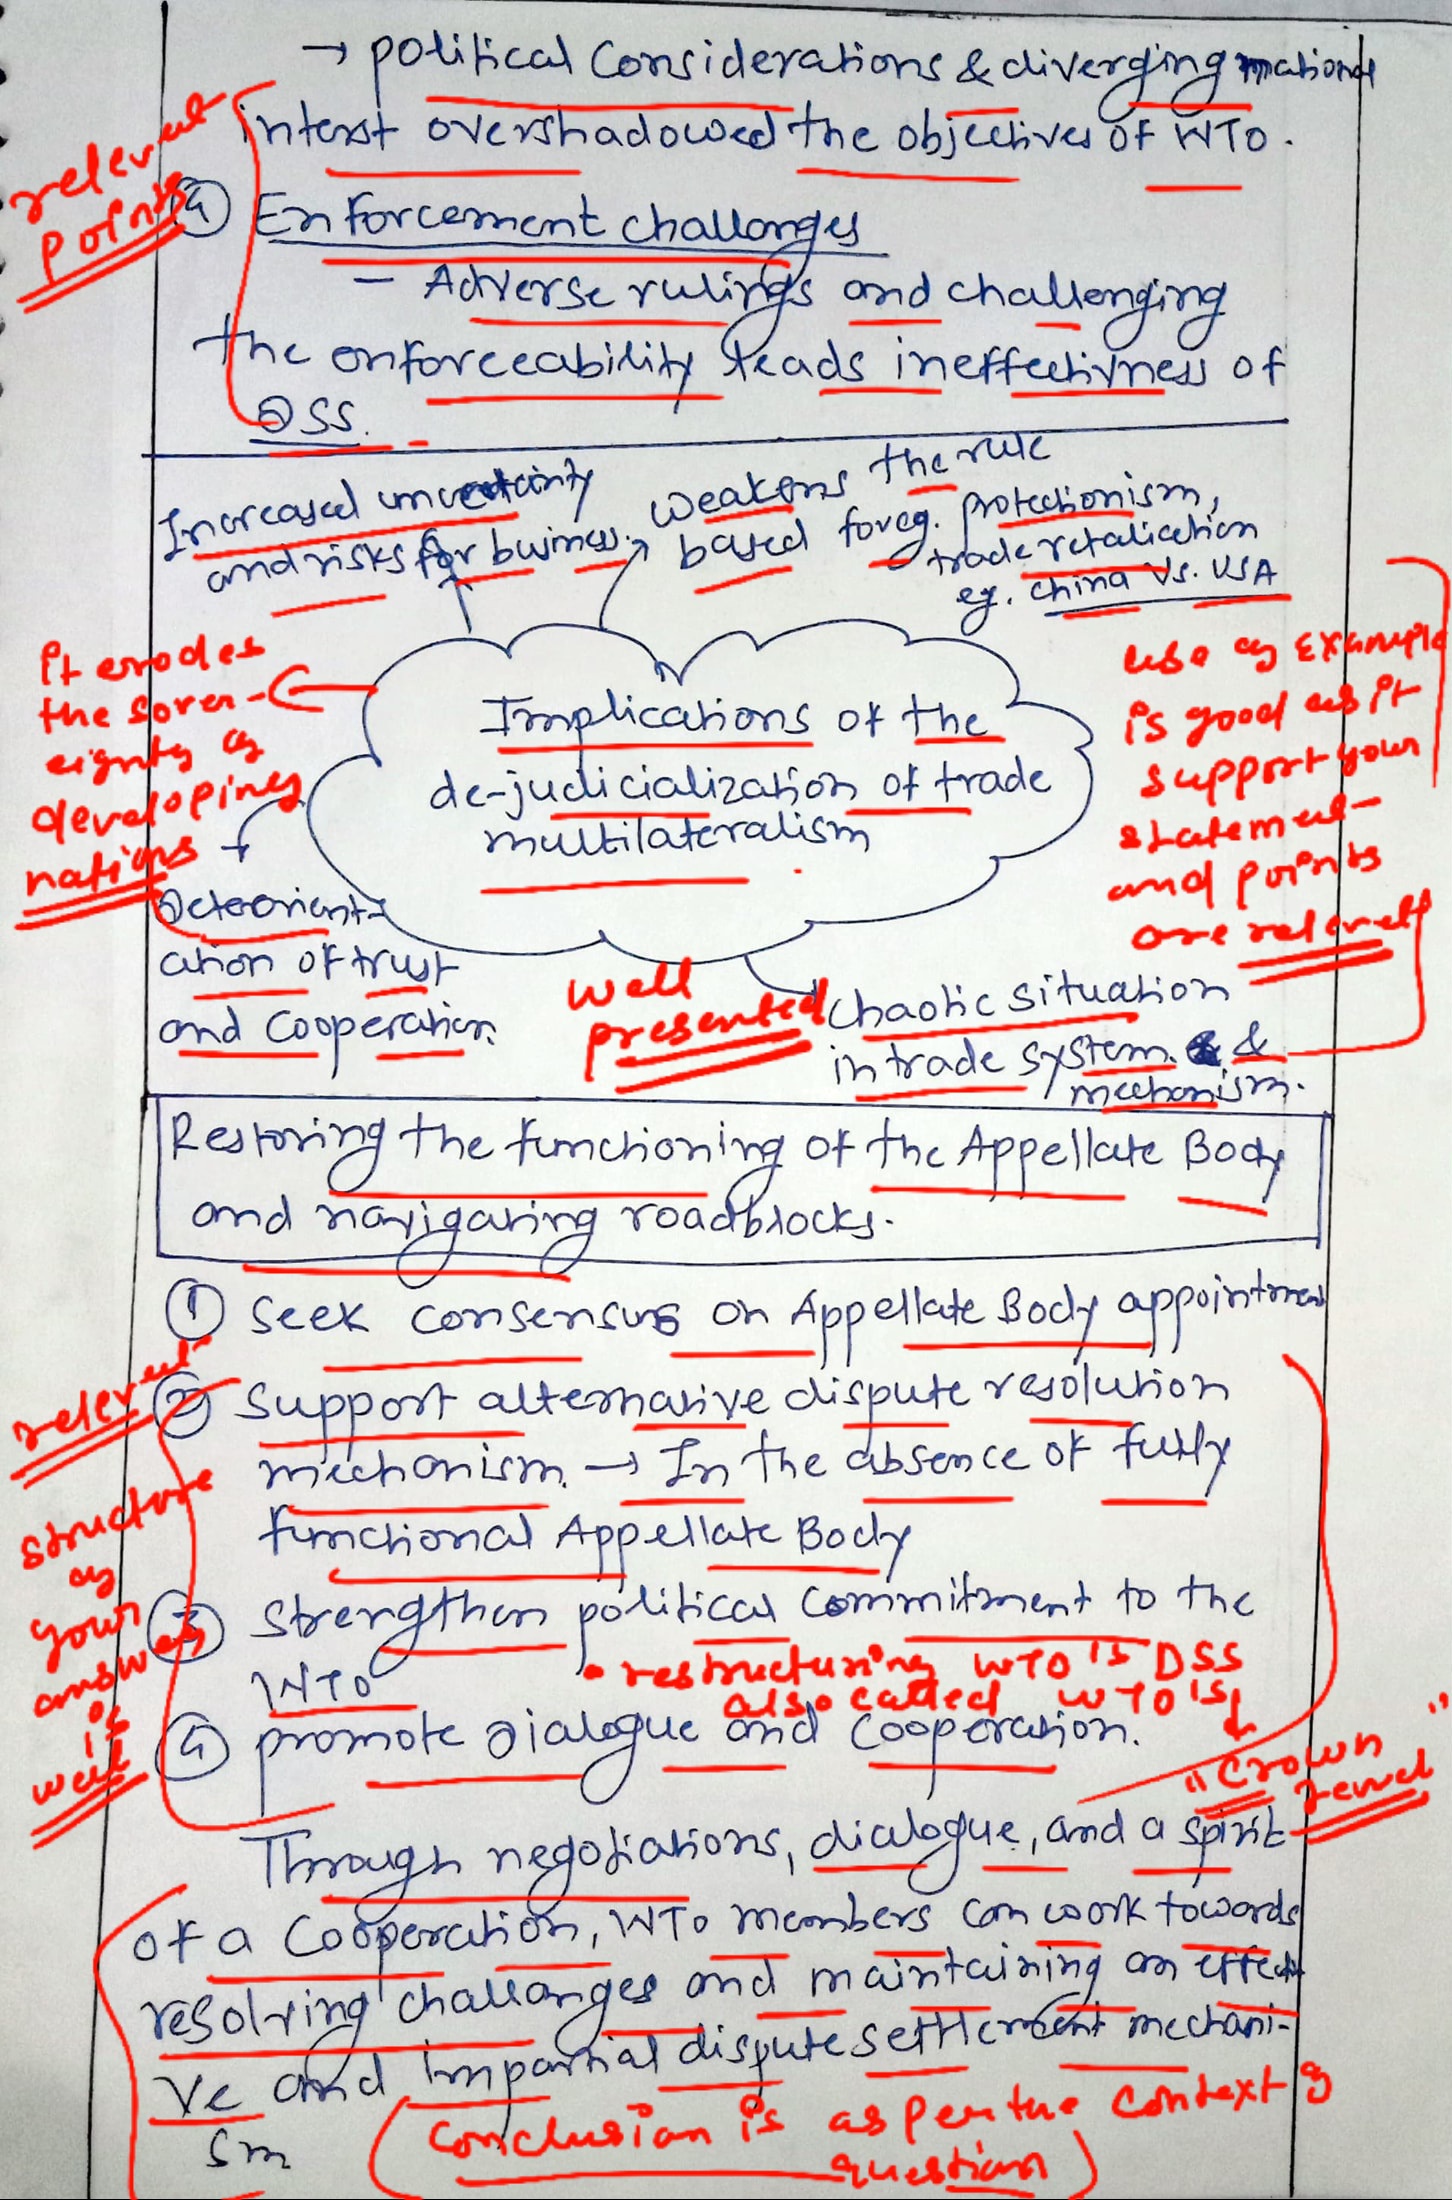 → political Considerations & diverging national
interst overshadowed the objectives of WTO.
relevent
points
④ Enforcement challanges
- Adverse rulings and challenging
the enforceability leads ineffectivness of
DSS.
Increased uncertainty
and risks for business.
weakens the rule
based for eg. protectionism,
trade retaliation
eg. china Vs. USA
it erodes
the sover-
eignty of
developing
nations
Implications of the
de-judicialization of trade
multilateralism
use of Example
is good as it
support your
statement
and points
are relevent
Deteorient-
ation of trust
and cooperation.
well
presented
chaotic situation
in trade system &
mechanism.
Restoring the functioning of the Appellate Body
and navigating roadblocks.
① Seek consensus on Appellate Body appointment
relevent
② Support alternative dispute resolution
mechanism. → In the absence of fully
functional Appellate Body
structure
of
your
answer
is
well
③ Strengthen political commitment to the
WTO
• restructuring WTO is DSS
also called WTO is
④ promote dialogue and cooperation.
"Crown
Jewel"
Through negotiations, dialogue, and a spirit
of a Cooperation, WTO members can work towards
resolving challanges and maintaining an effecti
ve and impartial dispute settlement mechani-
sm
(conclusion is as per the context of
question)